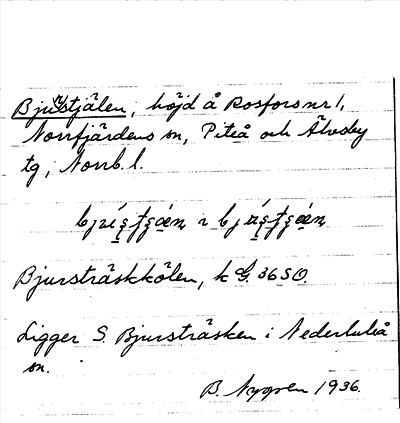 Bjurstjälen, höjd å Rosfors nr 1,
Norrfjärdens sn, Piteå och Älvsby
tg, Norrb. l.
Bjursträskkölen, k G. 36 SO.
Ligger S. Bjursträsken i Nederluleå
sn.
B. Nygren 1936.